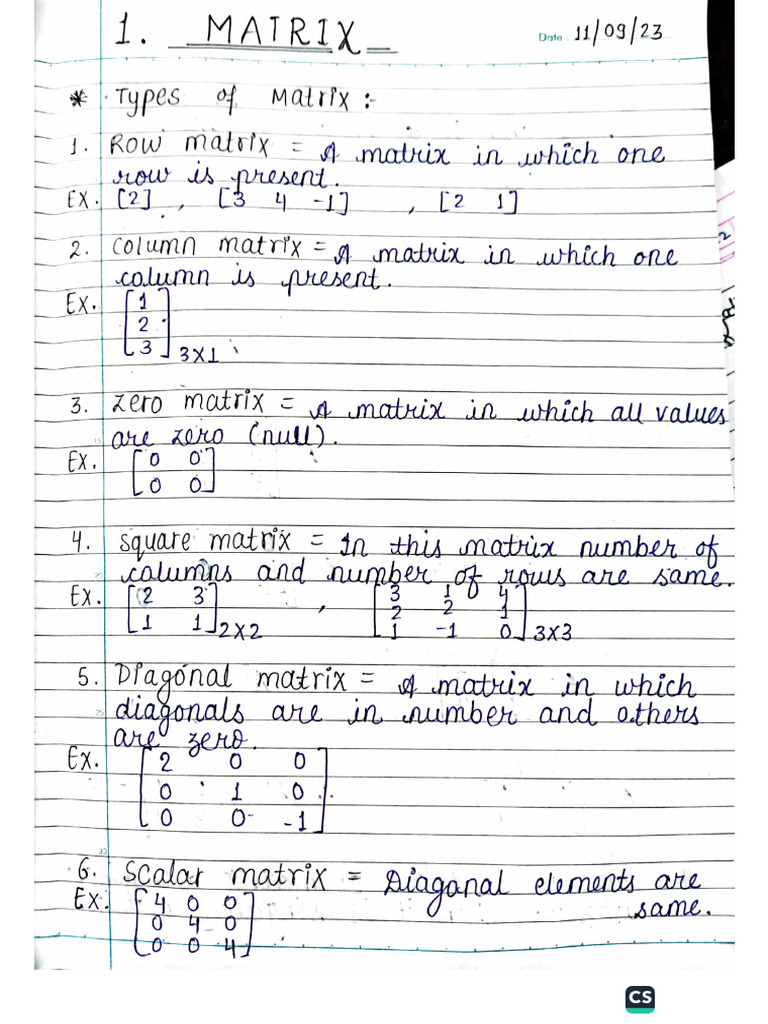 1. MATRIX
Date: 11/09/23
* Types of Matrix :-
1. Row matrix = A matrix in which one
row is present.
EX. [2] , [3 4 -1] , [2 1]
2. Column matrix = A matrix in which one
column is present.
Ex. [1
2
3] 3X1
3. Zero matrix = A matrix in which all values
are zero (null).
Ex. [0 0
0 0]
4. square matrix = In this matrix number of
columns and number of rows are same.
Ex. [2 3 , [3 1 4
2 2 1
1 1] 2X2 1 -1 0] 3X3
5. Diagonal matrix = A matrix in which
diagonals are in number and others
are zero.
Ex. [2 0 0
0 1 0
0 0 -1]
6. Scalar matrix = Diaganal elements are
same.
Ex. [4 0 0
0 4 0
0 0 4]
CS